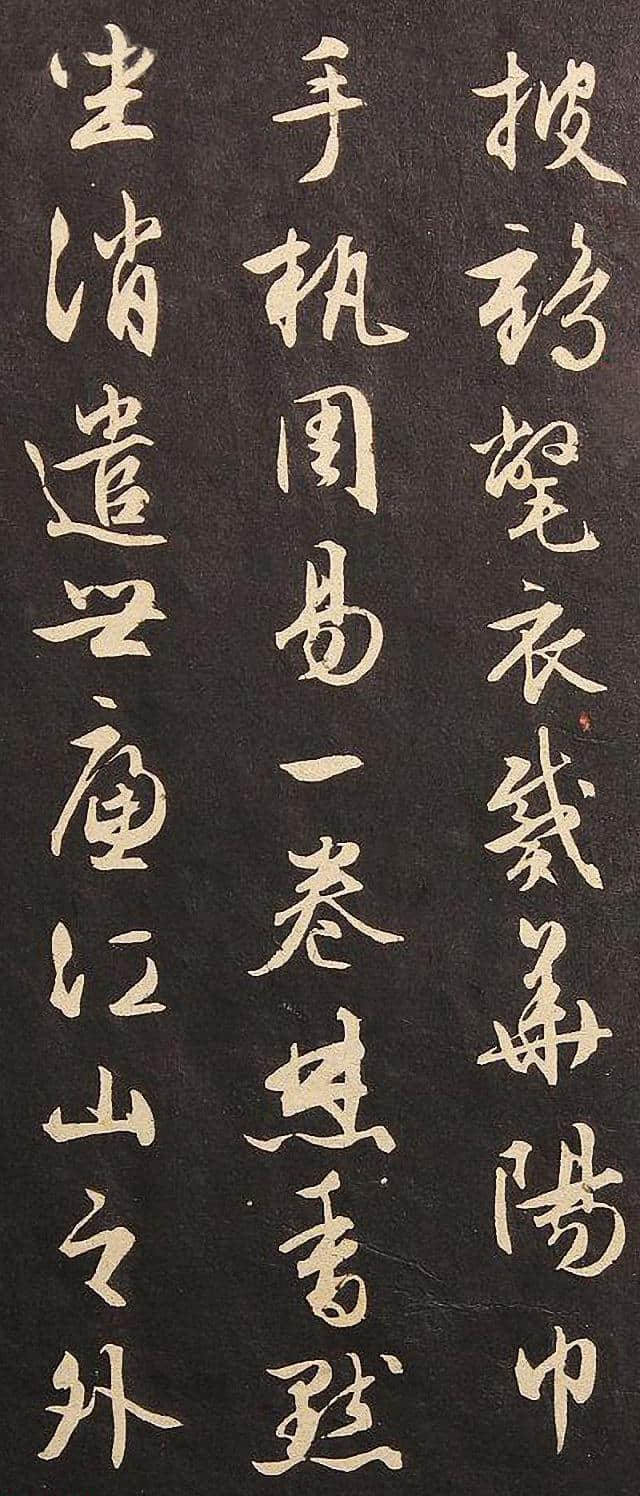 披鶴氅衣戴華陽巾
手執周易一卷焚香默
坐消遣世慮江山之外